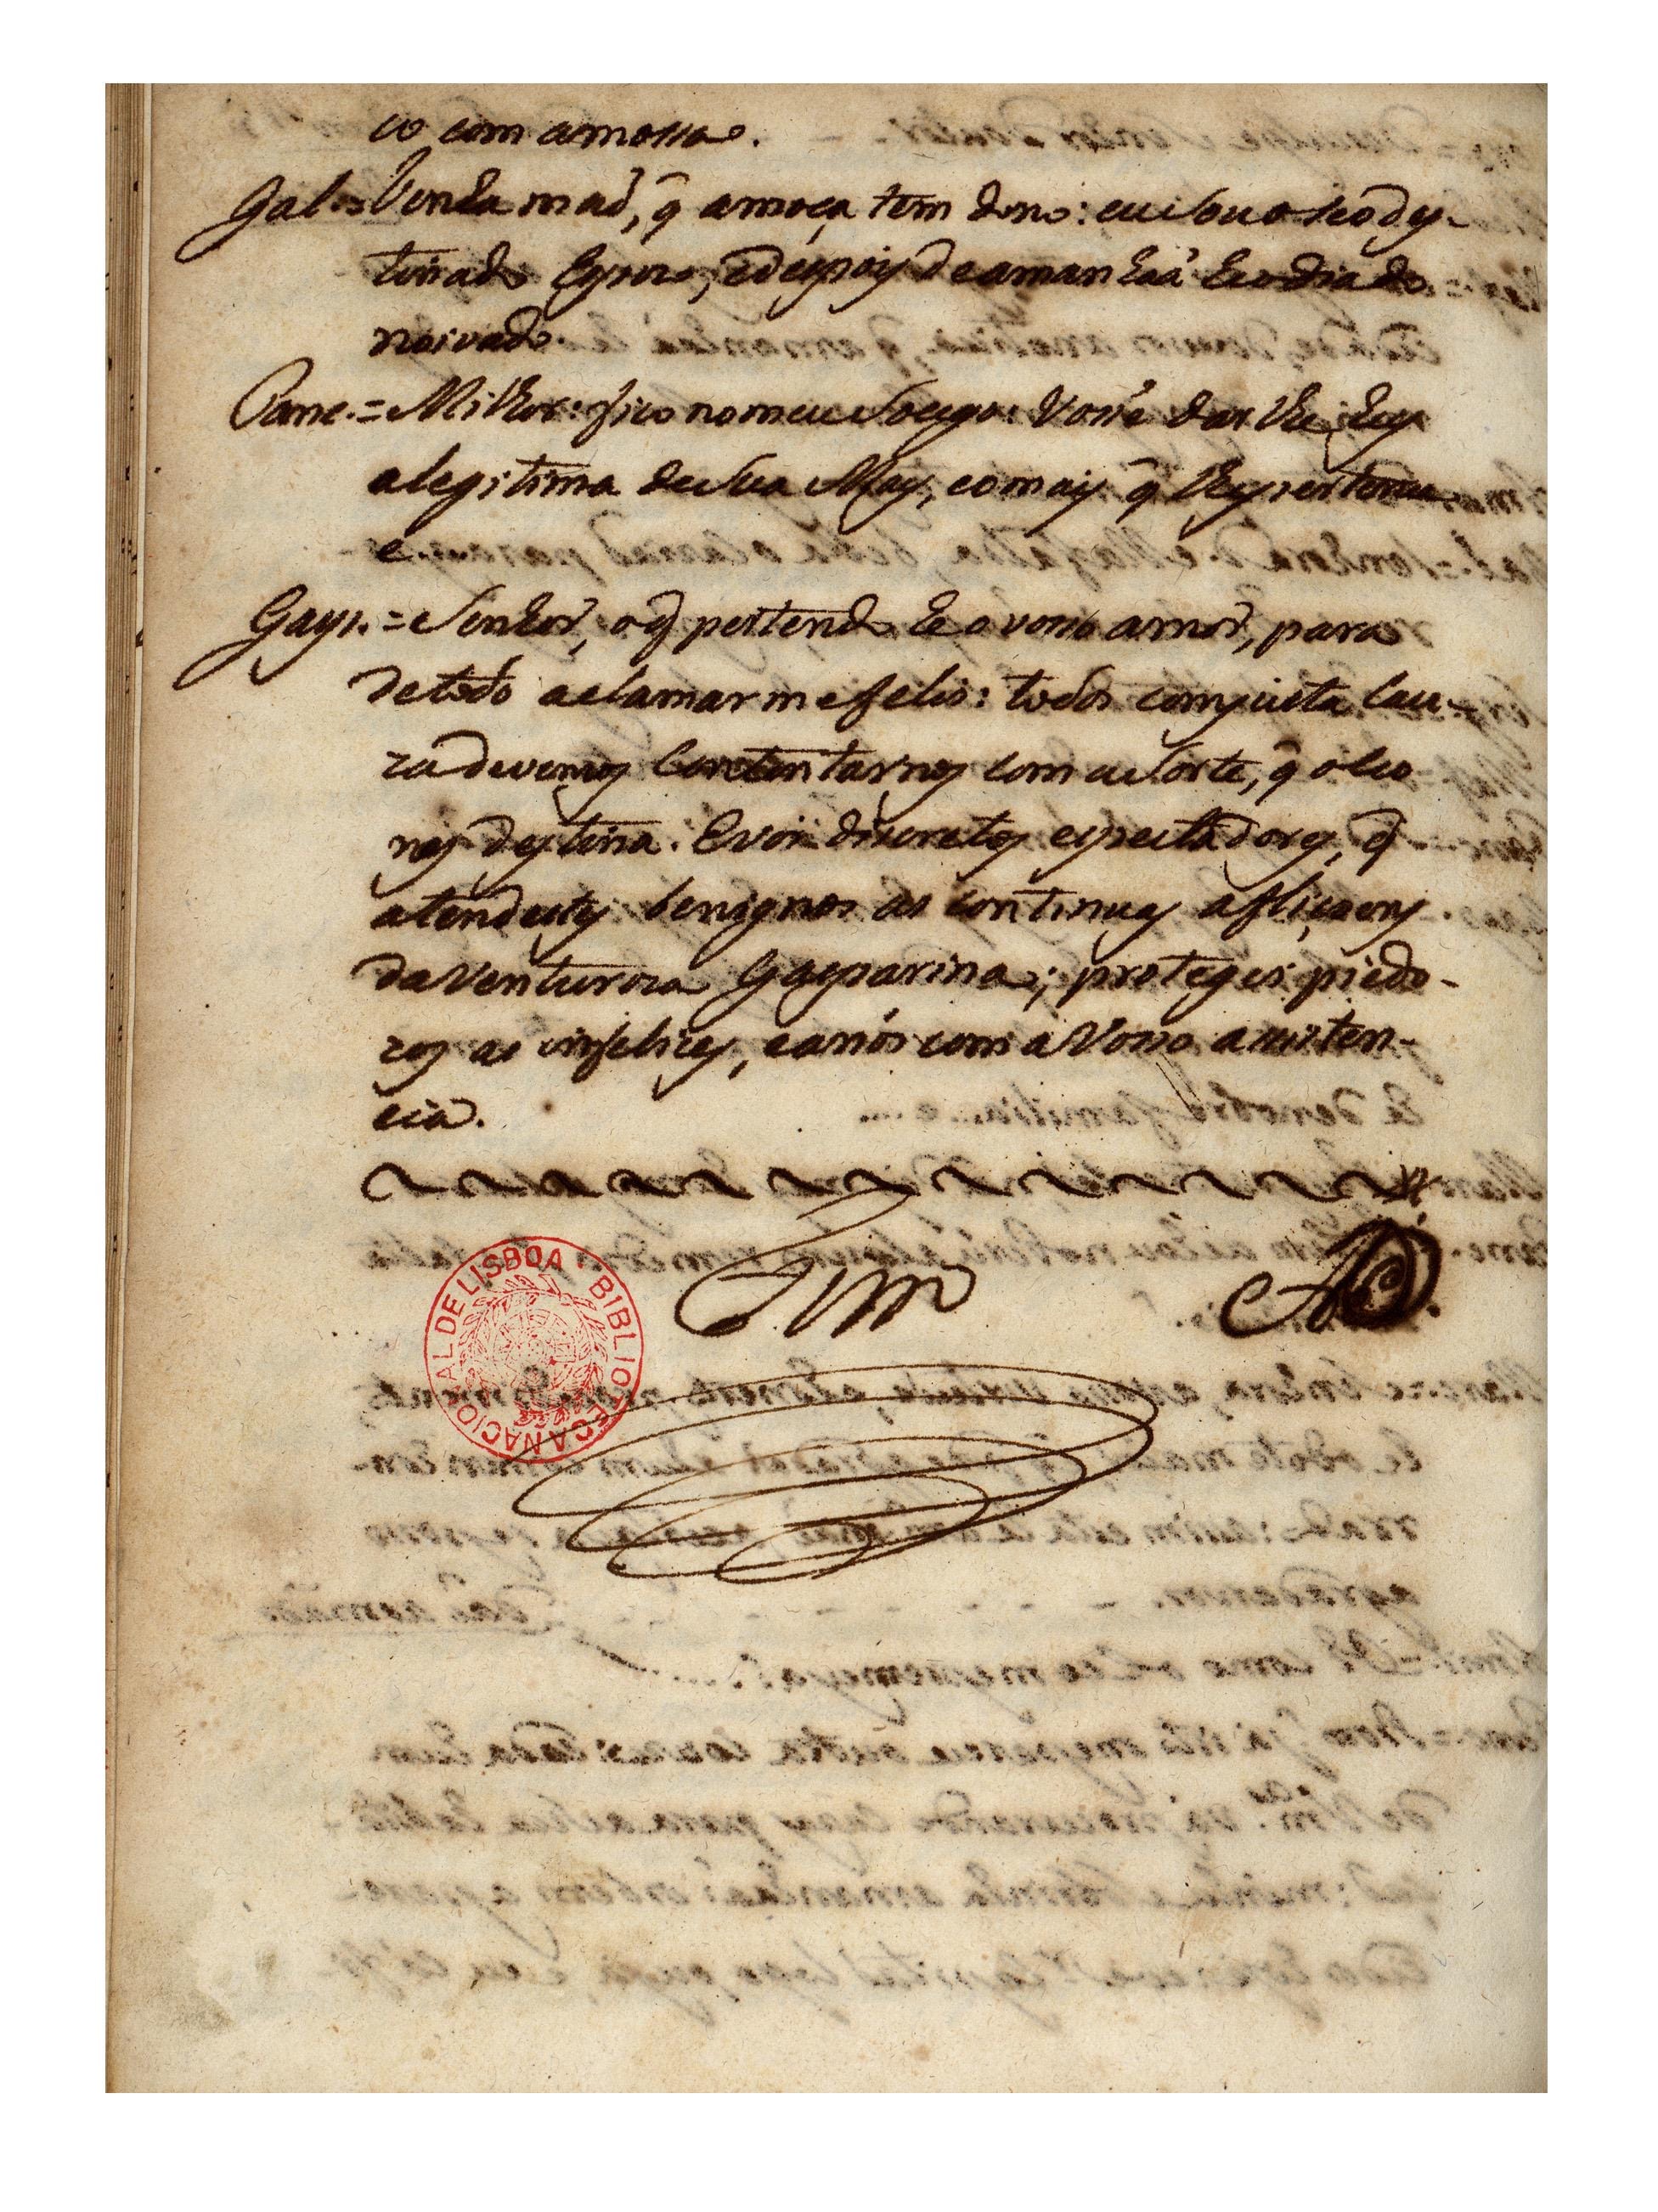 co com a mossa.
Gal. = Venha maõ, q̃ a moça tem dono: eu sou o seo des-
tinado Espozo, e depois de amanhaá he o dia do
noivado.
Panc. = Milhor: fico no meu socego: Vossé dar lhe, hey
a legitima de sua May, e o mais q̃ lhe pertence
e.....
Gasp. = Senhor, o q̃ pertendo he o vosso amor, para
de todo aclamar me felis: todos com justa cau-
za devemos Contentarnos com a sorte, q̃ o Ceo
nos destina. E vós discretos espectadores, q̃
atendestes benignos as continuas afliçoens
da Venturoza Gasparina; protegei piedo-
zos as infelices, e a nós com a Vossa assisten-
cia.
Fim
BIBLIOTECA NACIONAL DE LISBOA